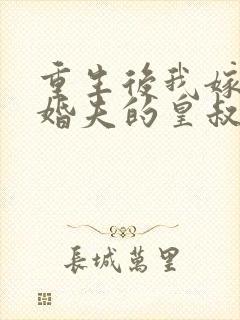 重生後我嫁
婚夫的皇叔
長城萬里